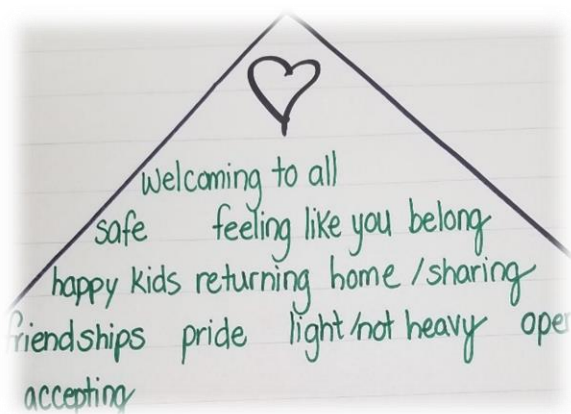 welcoming to all
safe feeling like you belong
happy kids returning home / sharing
friendships pride light/not heavy open
accepting